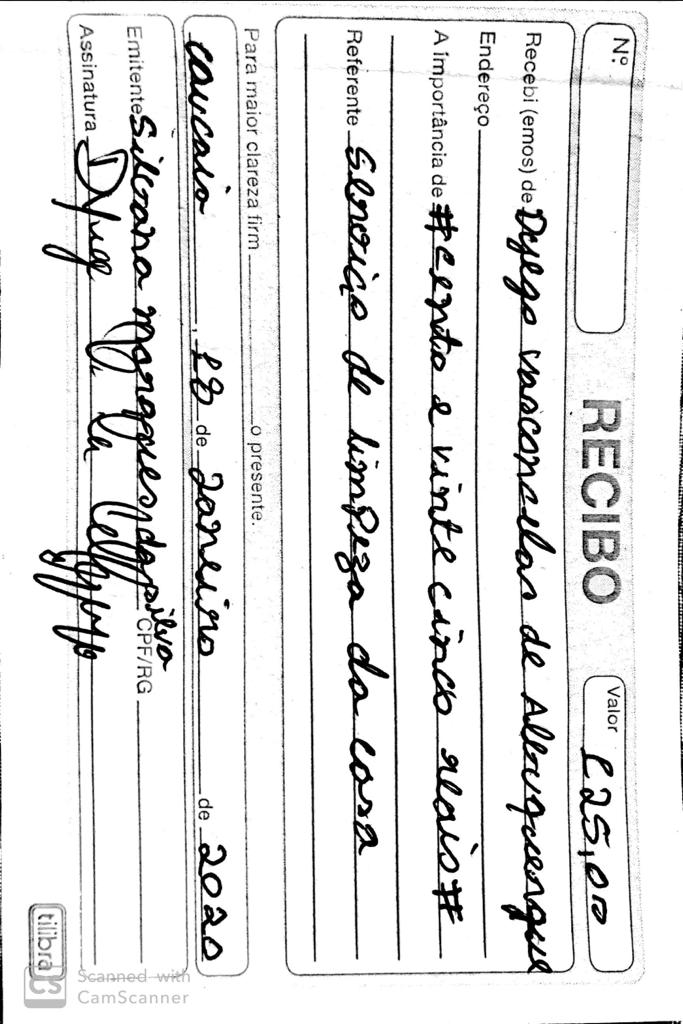 Nº RECIBO Valor 125,00
Recebi (emos) de Dyego vasconcelos de Albuquerque
Endereço
A importância de #cento e vinte cinco reais#
Referente Serviço de limpeza da casa
Para maior clareza firm o presente.
caucaia, 18 de Janeiro de 2020
Emitente Silvana marques da silva CPF/RG
Assinatura
tilibra
CS Scanned with
CamScanner